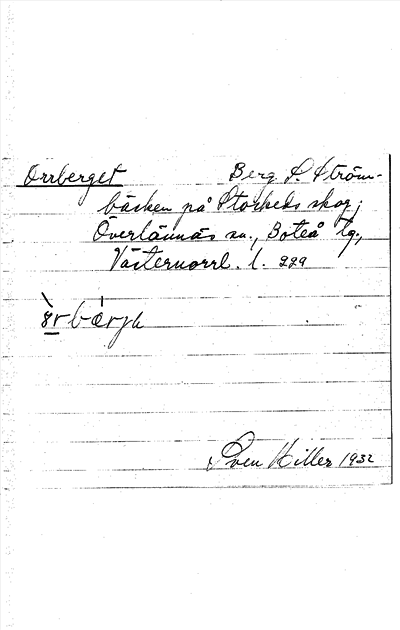 Orrberget Berg S. Ström-
bäcken på Storheds skog;
Överlännäs sn., Boteå tg.,
Västernorrl. l. 229
Sven Hiller 1932